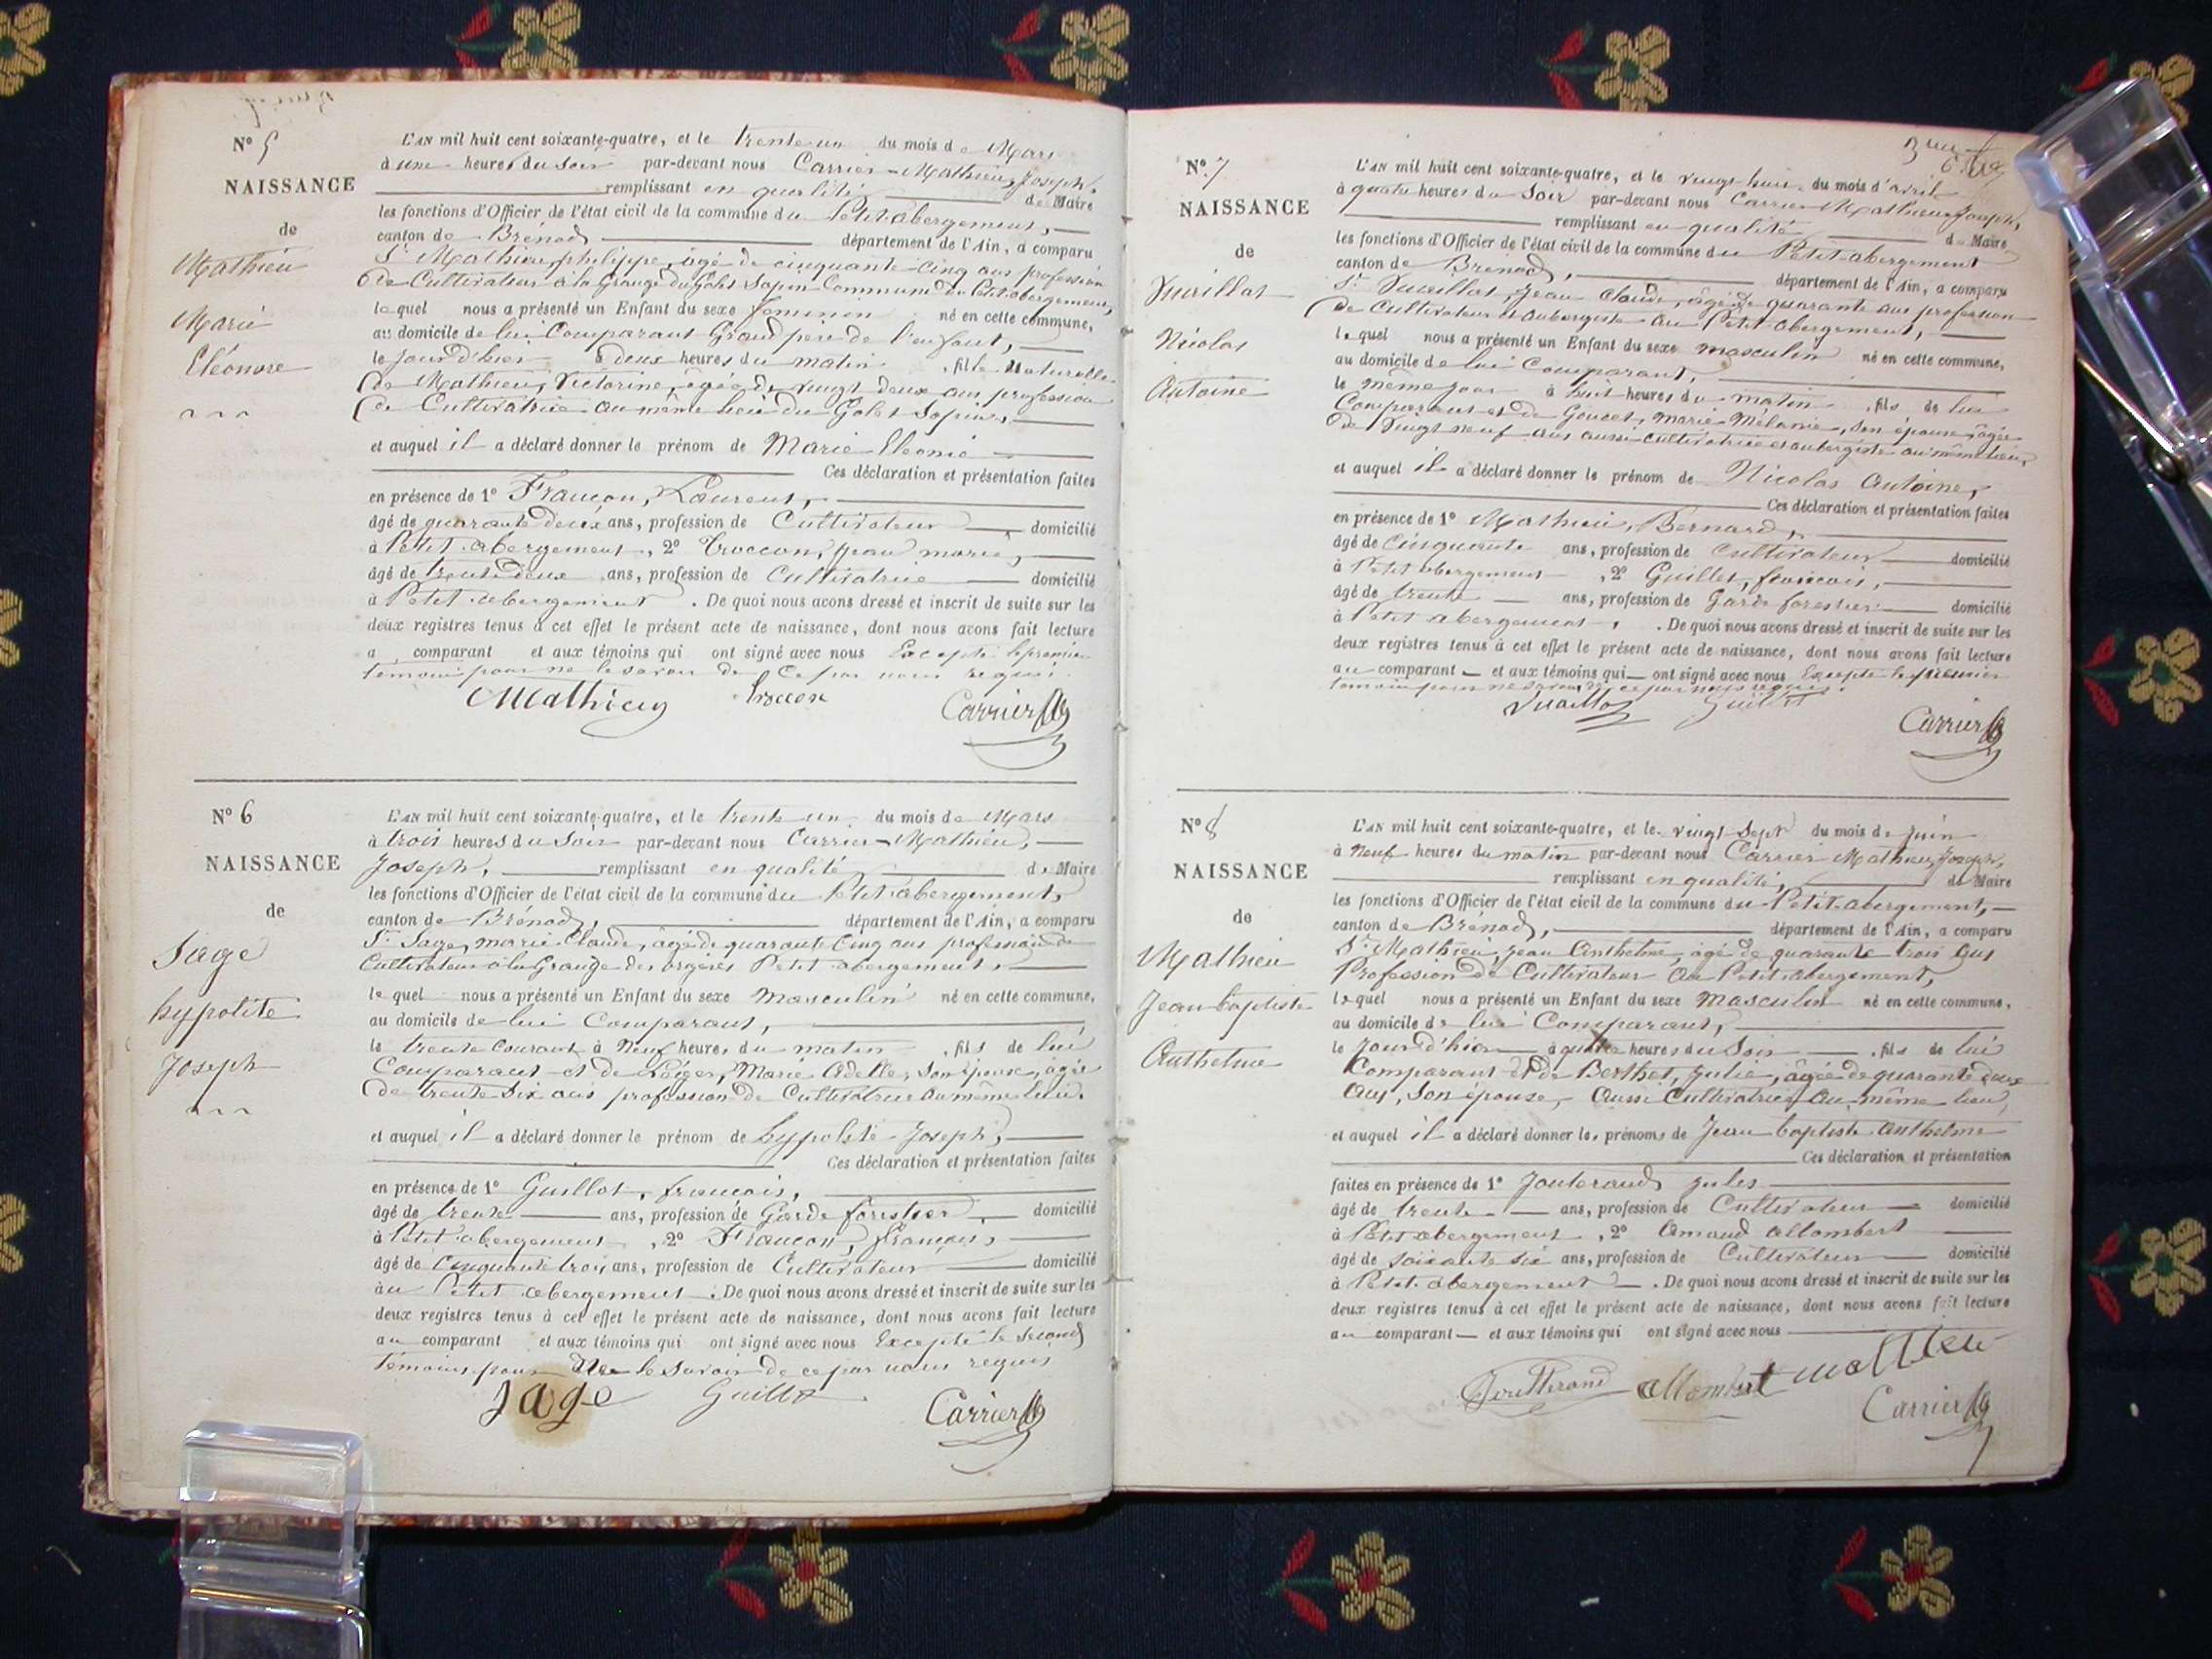 N° 5
NAISSANCE
de
Mathieu
Marie
Eléonore
L'AN mil huit cent soixante-quatre, et le trente un du mois de Mars
à une heure du soir par-devant nous Carrier-Mathieu, Joseph,
remplissant en qualité de Maire
les fonctions d'Officier de l'état civil de la commune du Petit-abergement,
canton de Brénod département de l'Ain, a comparu
Sr Mathieu philippe, âgé de cinquante cinq ans profession
de Cultivateur à la Grange du Golet Sapin Commune du Petit abergement,
lequel nous a présenté un Enfant du sexe feminin né en cette commune,
au domicile de lui Comparant Grand père de l'enfant,
le jour d'hier à deux heures du matin, fille Naturelle
de Mathieu, Victorine, âgée de vingt deux ans profession
de Cultivatrice au même lieu du Golet Sapin,
et auquel il a déclaré donner le prénom de Marie Eleonie
Ces déclaration et présentation faites
en présence de 1° Françon, Laurent,
âgé de quarante deux ans, profession de Cultivateur domicilié
à Petit abergement, 2° Troccon, Jean marie,
âgé de trente deux ans, profession de Cultivatrice domicilié
à Petit abergement. De quoi nous avons dressé et inscrit de suite sur les
deux registres tenus à cet effet le présent acte de naissance, dont nous avons fait lecture
a comparant et aux témoins qui ont signé avec nous Excepté le premier
temoin pour ne le savoir de ce par nous requis.
Mathieu Troccon Carrier
N° 6
NAISSANCE
de
Sage
hypolite
Joseph
L'AN mil huit cent soixante-quatre, et le trente un du mois de Mars
à trois heures du soir par-devant nous Carrier-Mathieu,
Joseph, remplissant en qualité de Maire
les fonctions d'Officier de l'état civil de la commune du Petit abergement,
canton de Brénod, département de l'Ain, a comparu
Sr Sage, marie Claude, âgé de quarante Cinq ans profession de
Cultivateur à la Grange des orgères Petit abergement,
lequel nous a présenté un Enfant du sexe Masculin né en cette commune,
au domicile de lui Comparant,
le trente courant à Neuf heures du matin, fils de lui
Comparant et de Léger, Marie Adelle, son épouse, âgée
de trente six ans profession de Cultivatrice au même lieu.
et auquel il a déclaré donner le prénom de hypolite Joseph,
Ces déclaration et présentation faites
en présence de 1° Guillot, francois,
âgé de trente ans, profession de Garde forestier, domicilié
à Petit abergement, 2° Françon, François,
âgé de Cinquante trois ans, profession de Cultivateur domicilié
à au Petit abergement. De quoi nous avons dressé et inscrit de suite sur les
deux registres tenus à cet effet le présent acte de naissance, dont nous avons fait lecture
au comparant et aux témoins qui ont signé avec nous Excepté le second
témoins pour Ne le savoir de ce par nous requis
Sage Guillot Carrier
N° 7
NAISSANCE
de
Vuaillat
Nicolas
Antoine
L'AN mil huit cent soixante-quatre, et le vingt huit du mois d'avril
à quatre heures du Soir par-devant nous Carrier Mathieu Joseph,
remplissant en qualité de Maire
les fonctions d'Officier de l'état civil de la commune du Petit abergement
canton de Brénod, département de l'Ain, a comparu
Sr Vuaillat, Jean Claude, âgé de quarante ans profession
de Cultivateur et aubergiste au Petit abergement,
lequel nous a présenté un Enfant du sexe masculin né en cette commune,
au domicile de lui Comparant,
le même jour à huit heures du matin, fils de lui
Comparant et de Goucet, marie Mélanie, son épouse, âgée
de Vingt neuf ans aussi cultivatrice et aubergiste au même lieu,
et auquel il a déclaré donner le prénom de Nicolas antoine,
Ces déclaration et présentation faites
en présence de 1° Mathieu, Bernard,
âgé de Cinquante ans, profession de Cultivateur domicilié
à Petit abergement, 2° Guillot, francois,
âgé de trente ans, profession de Garde forestier domicilié
à Petit abergement. De quoi nous avons dressé et inscrit de suite sur les
deux registres tenus à cet effet le présent acte de naissance, dont nous avons fait lecture
au comparant et aux témoins qui ont signé avec nous Excepté le premier
temoin pour ne savoir de ce par nous requis.
Vuaillat Guillot
Carrier
N° 8
NAISSANCE
de
Mathieu
Jean baptiste
Anthelme
L'AN mil huit cent soixante-quatre, et le vingt Sept du mois de Juin
à Neuf heures du matin par-devant nous Carrier Mathieu Joseph,
remplissant en qualité, de Maire
les fonctions d'Officier de l'état civil de la commune du Petit abergement,
canton de Brénod, département de l'Ain, a comparu
Sr Mathieu, Jean Anthelme, âgé de quarante trois ans
Profession de Cultivateur au Petit abergement,
lequel nous a présenté un Enfant du sexe Masculin né en cette commune,
au domicile de lui Comparant,
le Jour d'hier à quatre heures du Soir, fils de lui
Comparant et de Berthet, Julie, âgée de quarante deux
ans, son épouse, aussi Cultivatrice au même lieu,
et auquel il a déclaré donner les prénoms de Jean baptiste anthelme
Ces déclaration et présentation
faites en présence de 1° Jouterand Jules
âgé de trente ans, profession de Cultivateur domicilié
à Petit abergement, 2° Amand allombert
âgé de soixante six ans, profession de Cultivateur domicilié
à Petit abergement. De quoi nous avons dressé et inscrit de suite sur les
deux registres tenus à cet effet le présent acte de naissance, dont nous avons fait lecture
au comparant et aux témoins qui ont signé avec nous
Joutterand allombert mathieu
Carrier